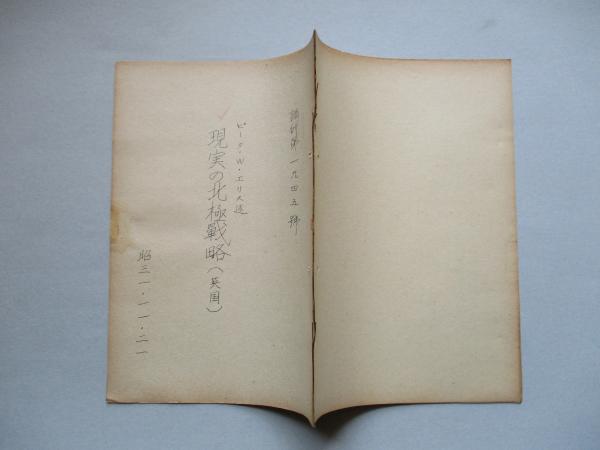 講究第一九四五號
ピータ・W・エリス述
現実の北極戰略(英国)
昭三一・一一・二一